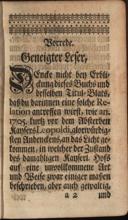 Vorrede.
Geneigter Leser,
DEncke nicht bey Erbli-
ckung dieses Buchs und
desselben Titul-Blats,
daß du darinnen eine solche Re-
lation antreffen wirst, wie An.
1705. kurtz vor dem Absterben
Kaysers Leopoldi, glorwürdig-
sten Andenckens, an das Licht ge-
kommen, in welcher der Zustand
des damahligen Kayserl. Hofs
auf eine unvollkommene Art
und Weise einiger massen
beschrieben, aber auch gewaltig,
a 2 und